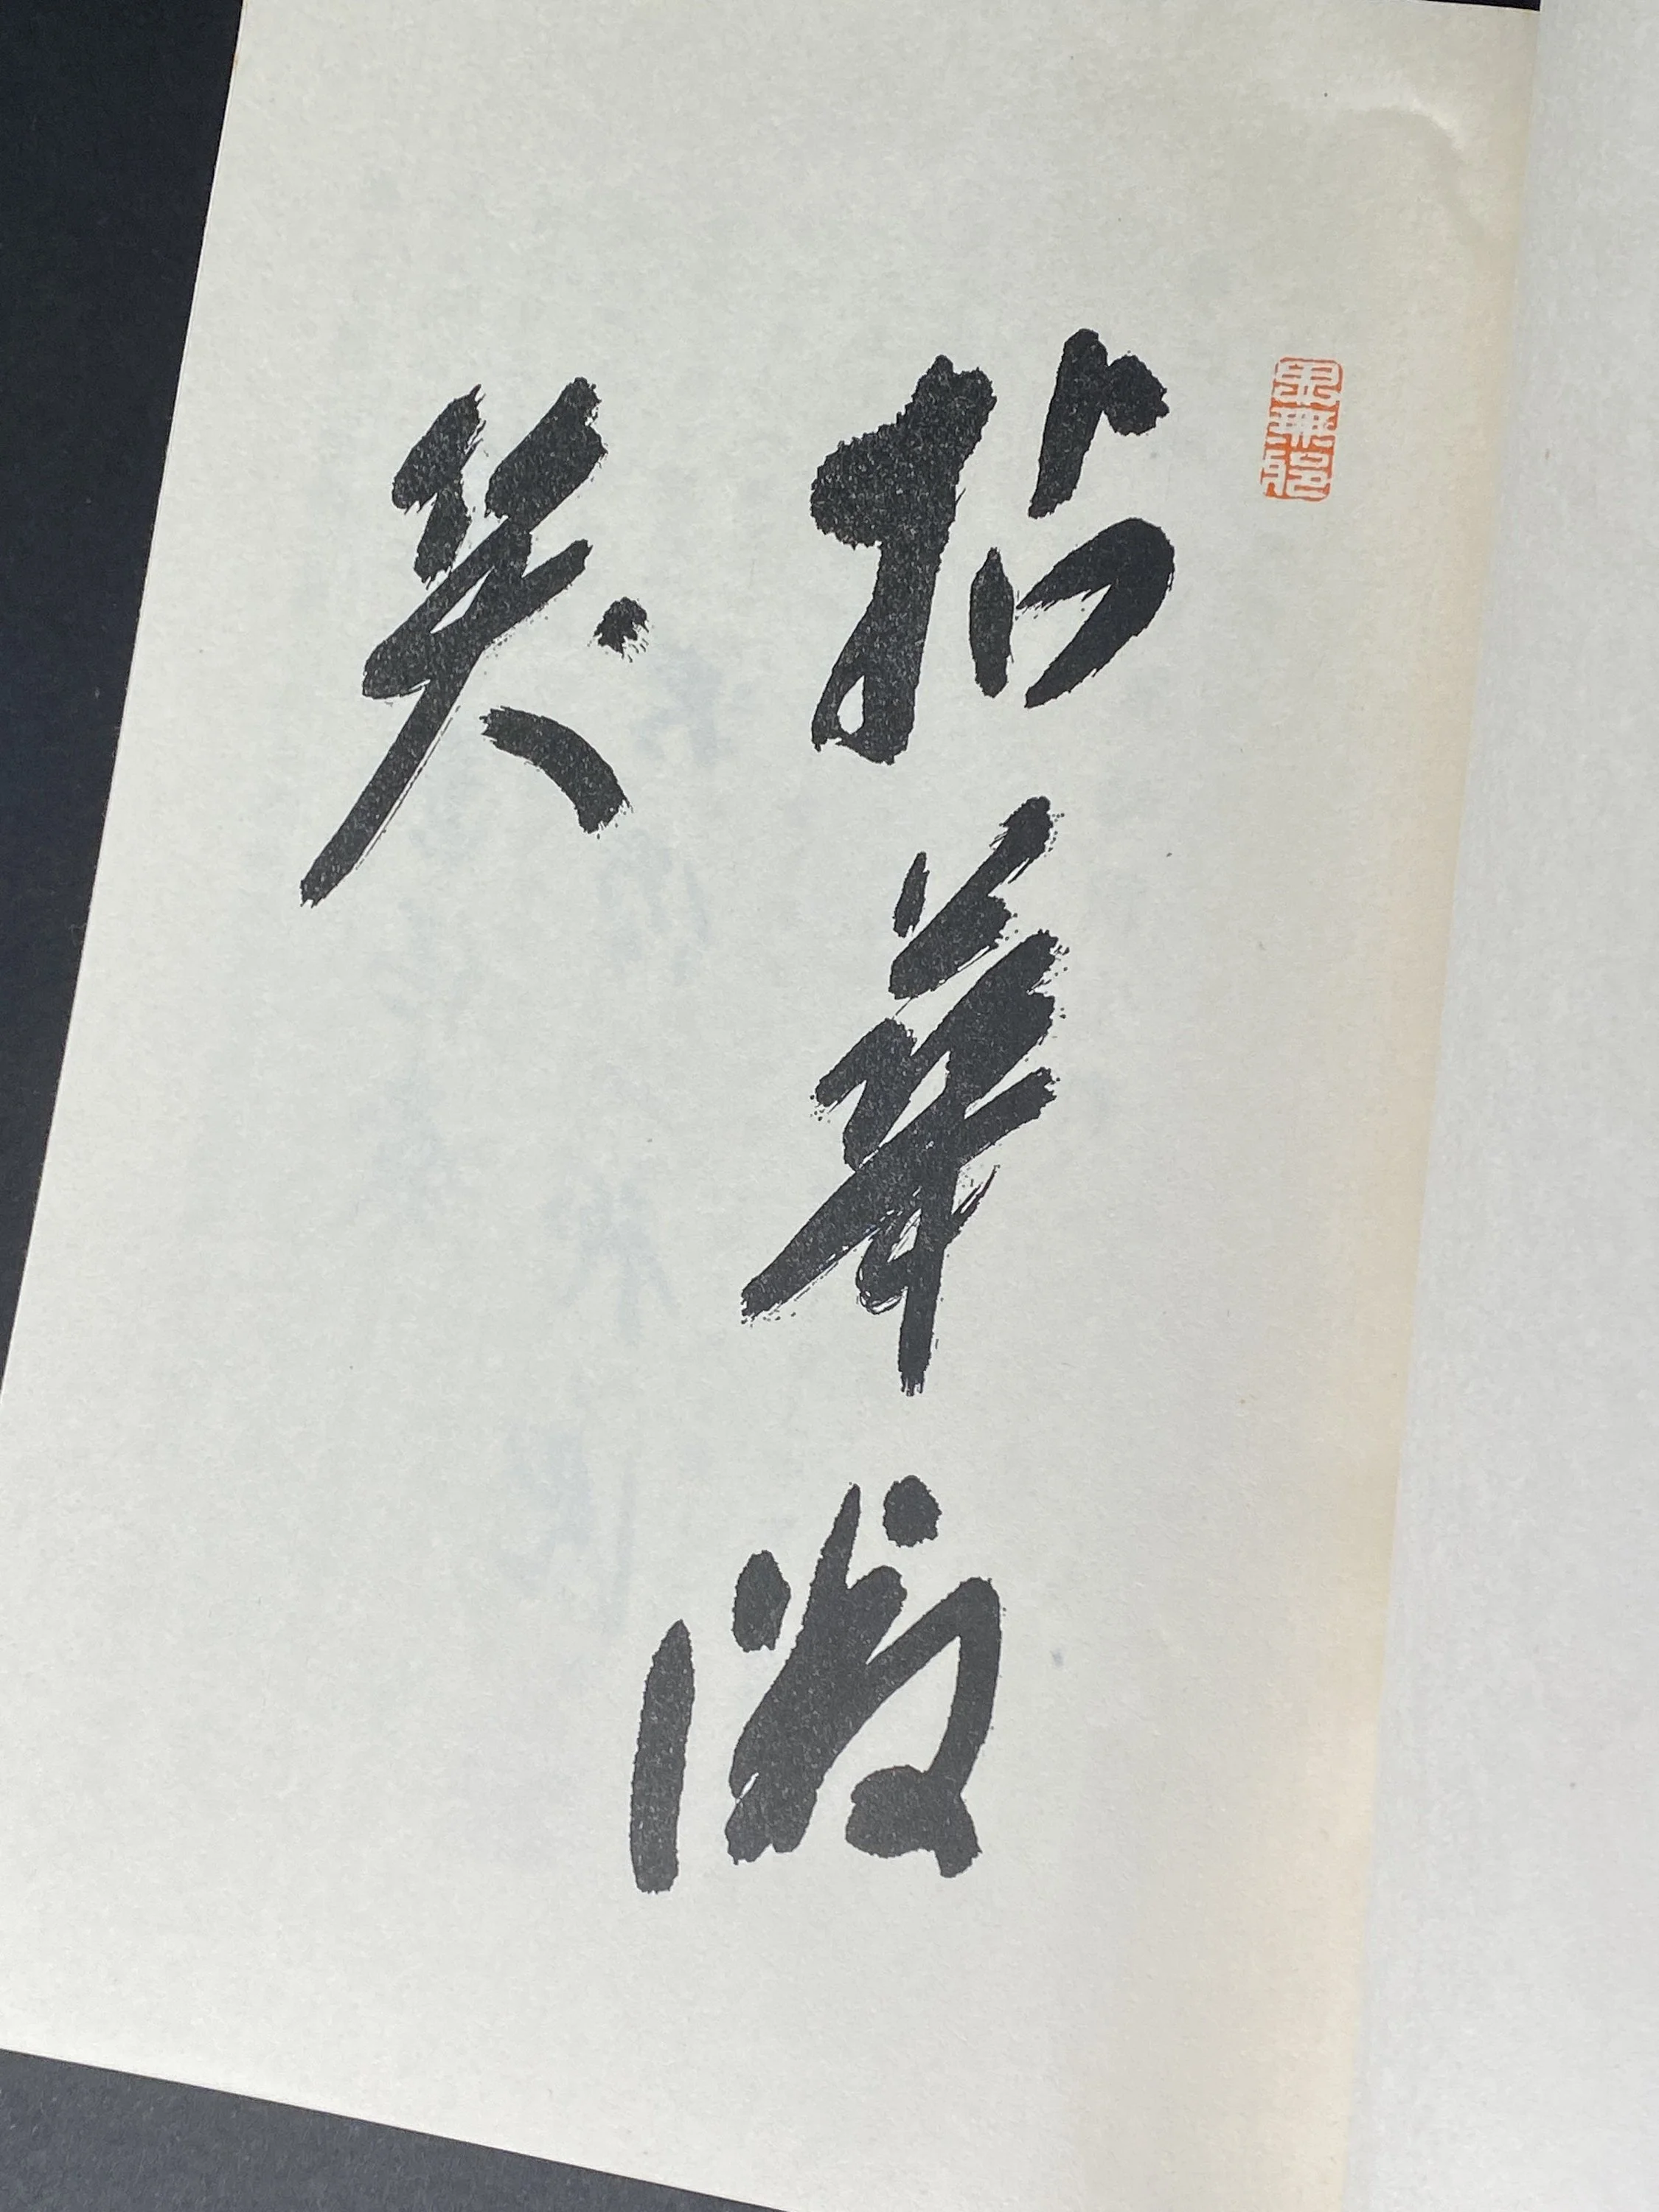 拈華微
笑